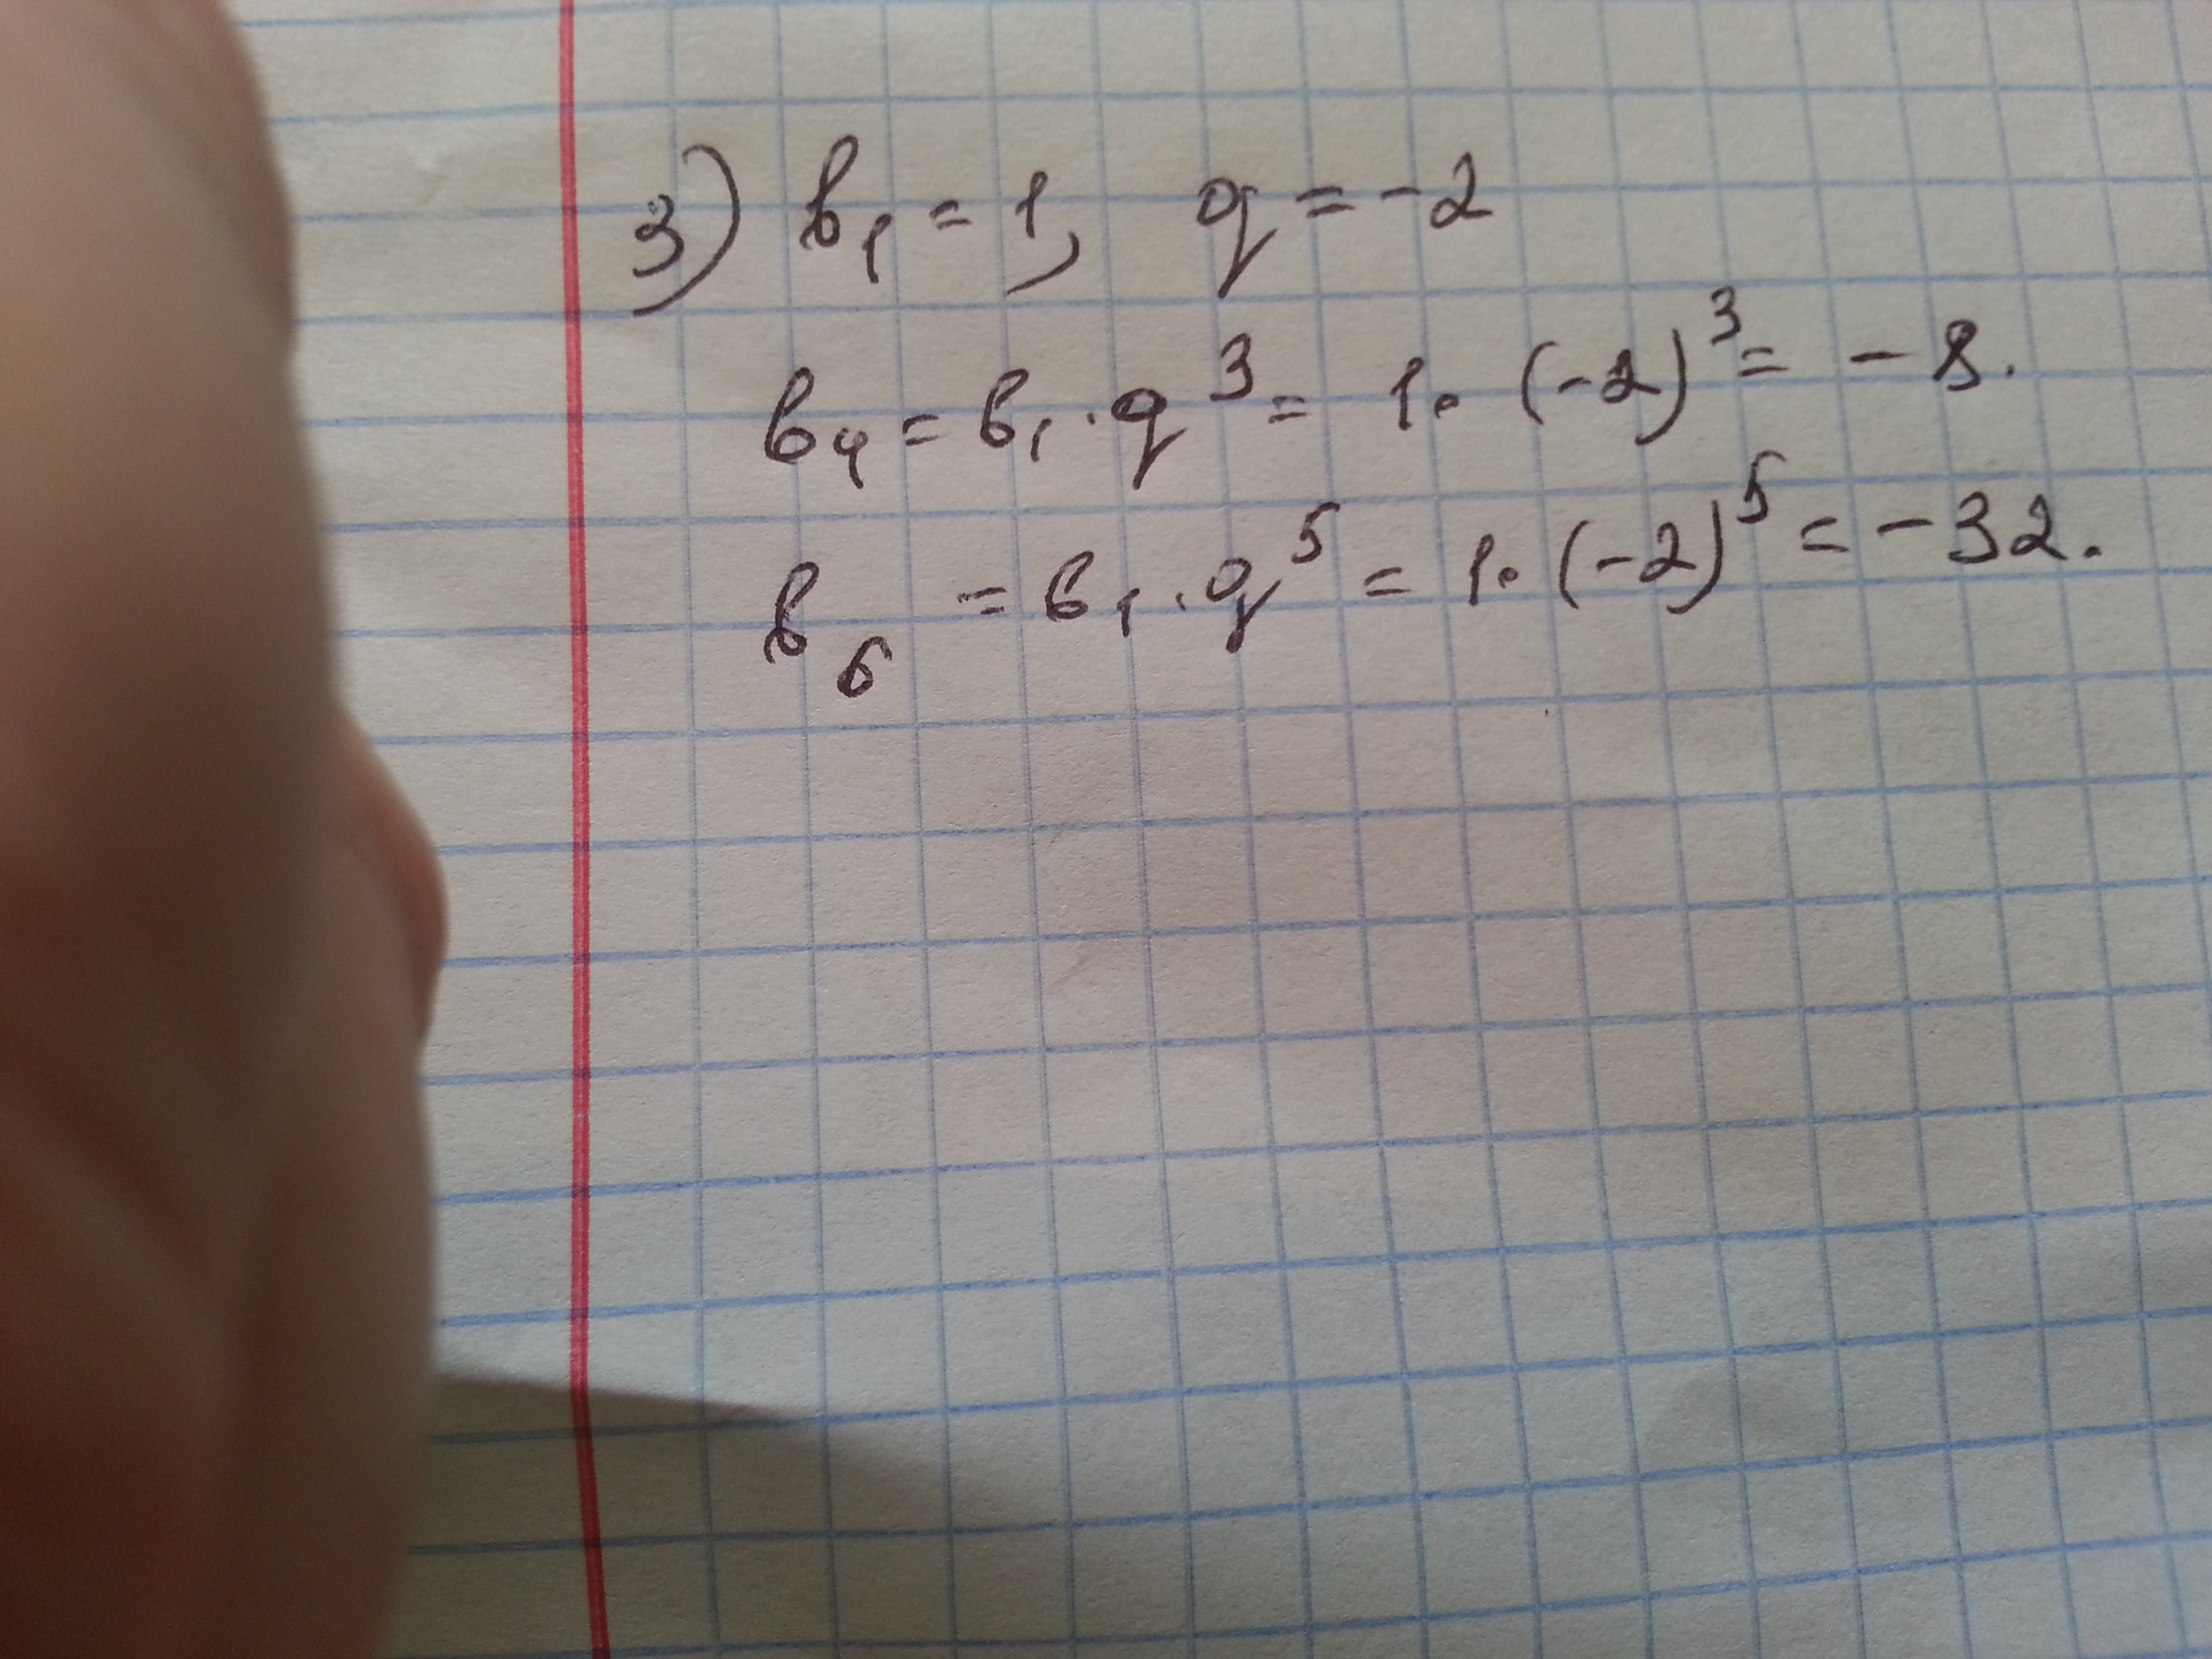 3) b₁ = 1, q = -2
b₄ = b₁ · q³ = 1 · (-2)³ = -8.
b₆ = b₁ · q⁵ = 1 · (-2)⁵ = -32.